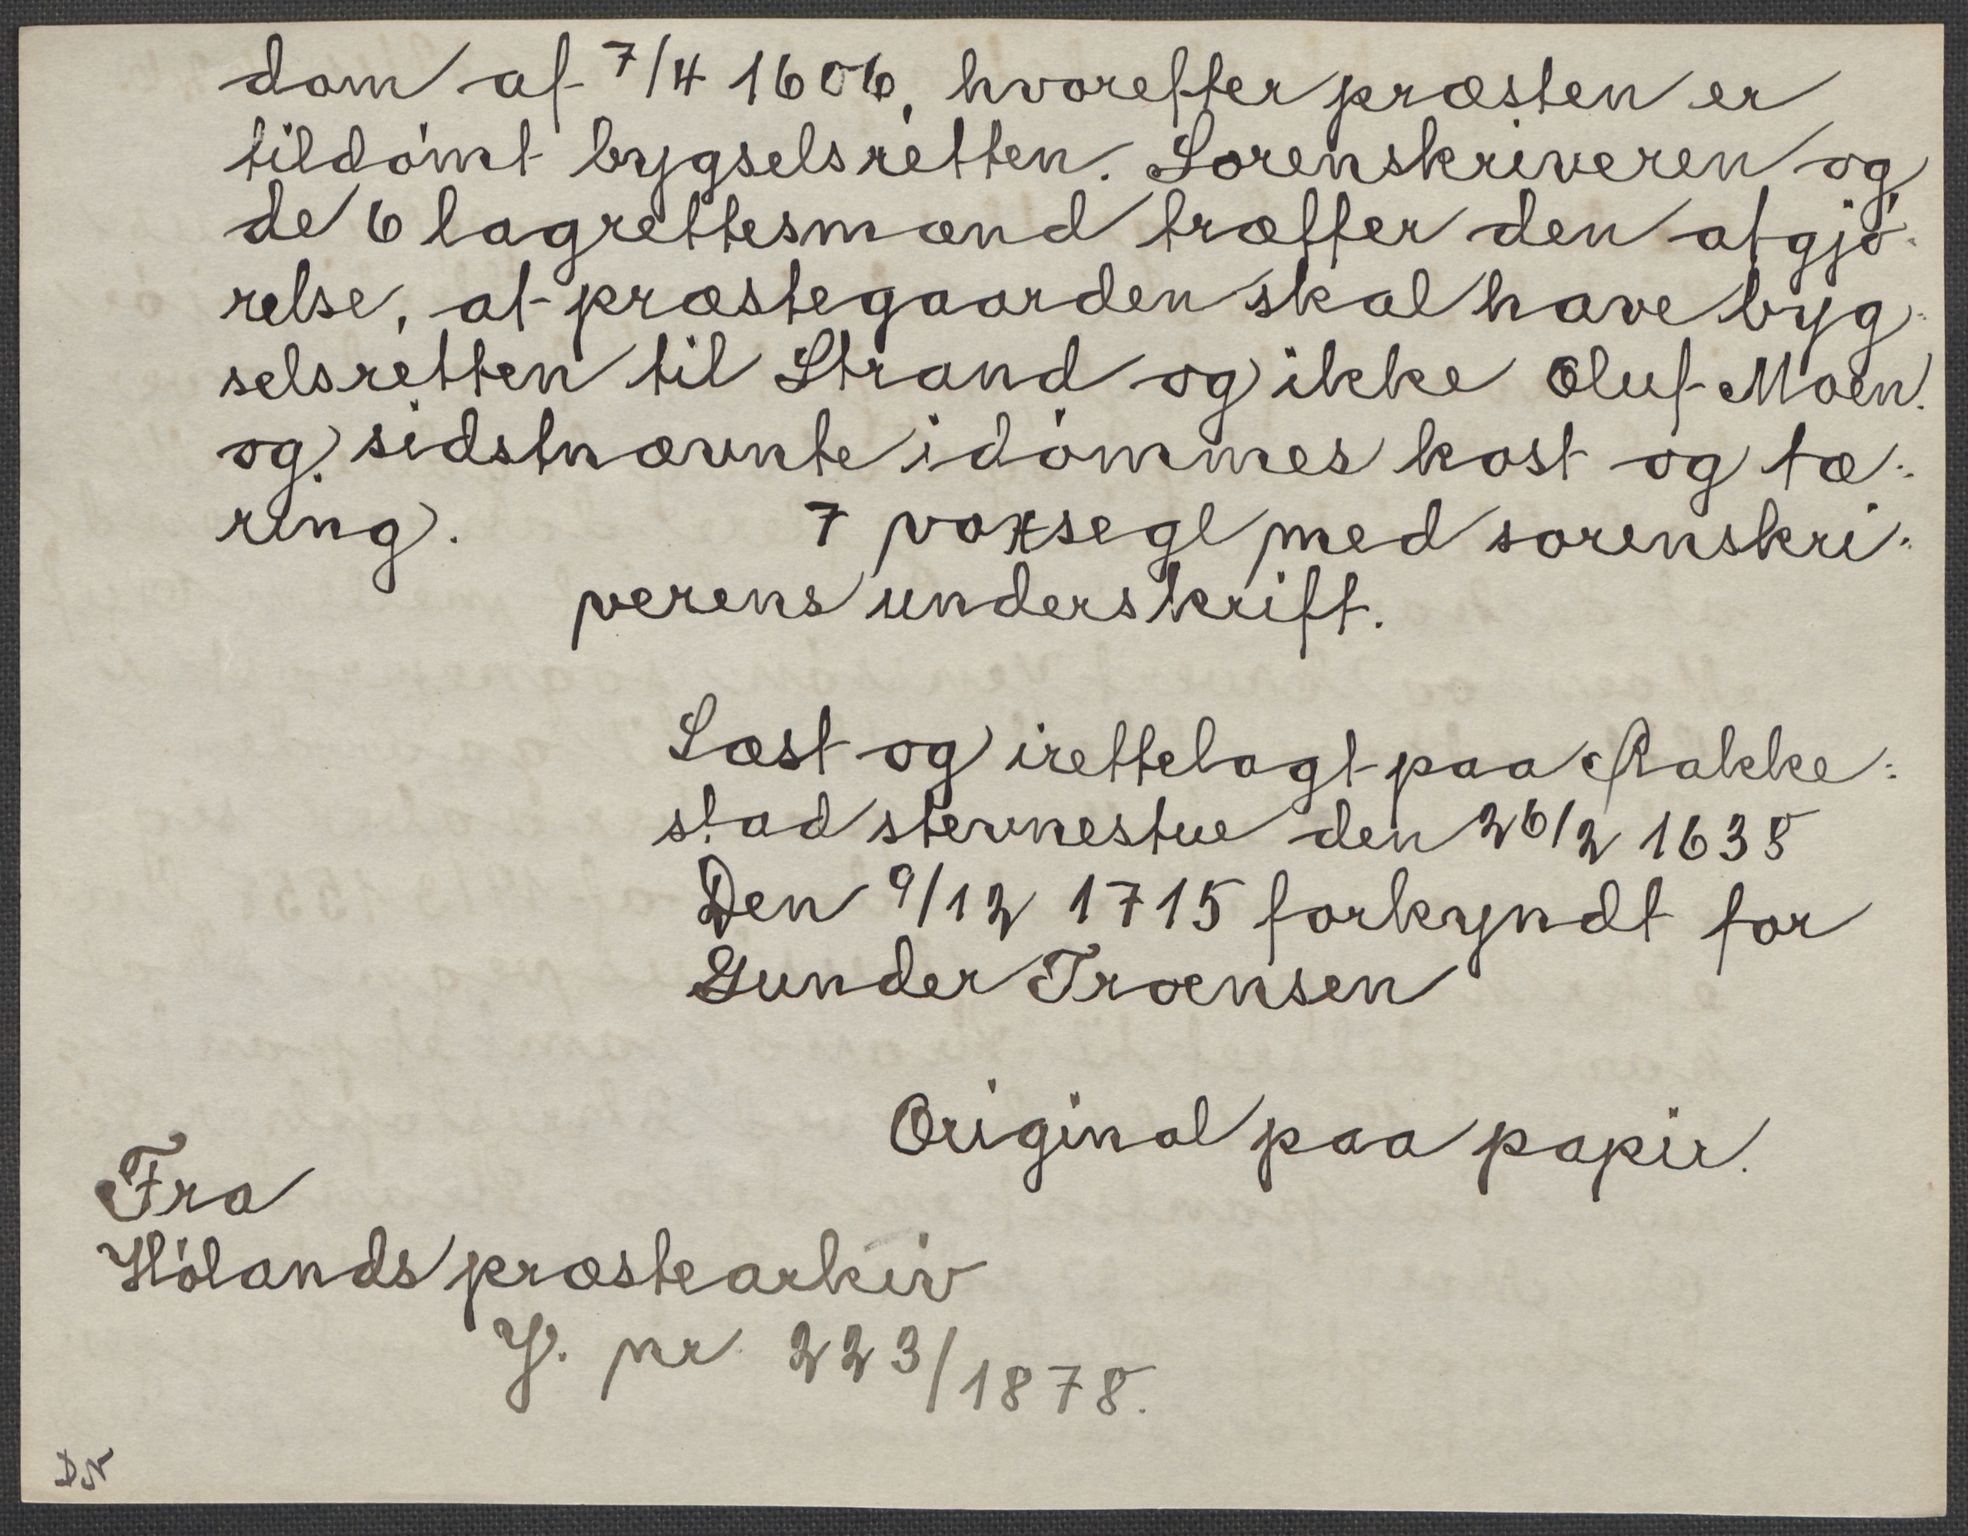 dom af 7/4 1606, hvorefter præsten er
tildómt bygselsretten. Sorenskriveren og
de 6 lagrettesmænd træffer den afgjó-
relse, at præstegaarden skal have byg-
selsretten til Strand og ikke Oluf Moen.
og sidstnævnte idómmes kost og tæ-
ring. 7 voxsegl med sorenskri-
verens underskrift.
Læst og irettelagt paa Rakke-
stad stevnestue den 26/2 1638
Den 9/12 1715 forkyndt for
Gunder Troensen
Original paa papir.
Fra
Hólands præstearkiv
J. nr 223/1878.
DN